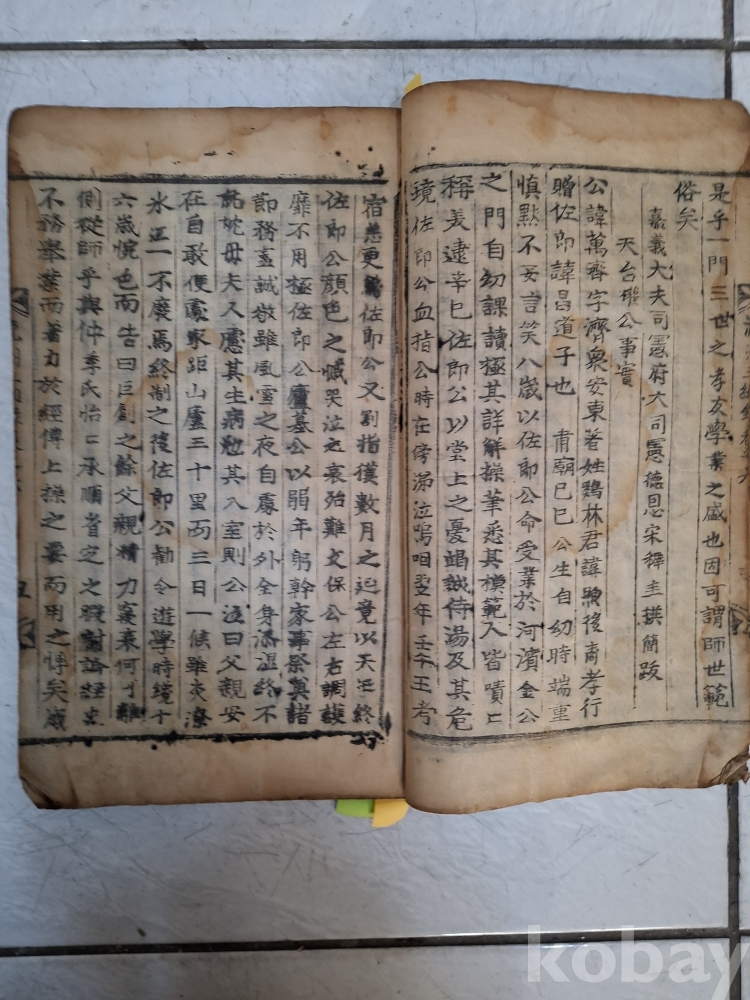 是乎一門三世之孝友學業之盛也因可謂師世範
俗矣
嘉義大夫司憲府大司憲德恩宋穉圭撰簡跋
天台 公事實
公諱萬齊字濟衆安東著姓鷄林君諱 後 孝行
贈佐郎諱昌道子也 肅廟己巳公生自幼時端重
愼默不妄言笑八歲以佐郎公命受業於河濱金公
之門自幼課讀極其詳解操筆悉其模範人皆嘖〻
稱美逮辛巳佐郎公以堂上之憂竭誠侍湯及其危
境佐郎公血指公時在傍涕泣嗚咽翌年壬午王考
宿恙更 佐郎公又割指獲數月之延竟以天年終
佐郎公顔色之慽哭泣之哀殆難支保公左右調護
靡不用極佐郎公廬墓公以弱年躬幹家事祭奠諸
節務盡誠敬雖風雪之夜自處於外全身添 終不
託 母夫人慮其生病 其入室則公泣曰父親安
在自敢便處家距山廬三十里而三日一候雖炎潦
氷 一不廢焉終制之後佐郎公勸令遊學時境十
六歲悗色而告曰巨創之餘父親精力 衰何 離
側從師乎與仲季氏怡〻承順省定之暇討論經史
不務擧業而著力於經傳上操之要而用之 矣歲
kobay